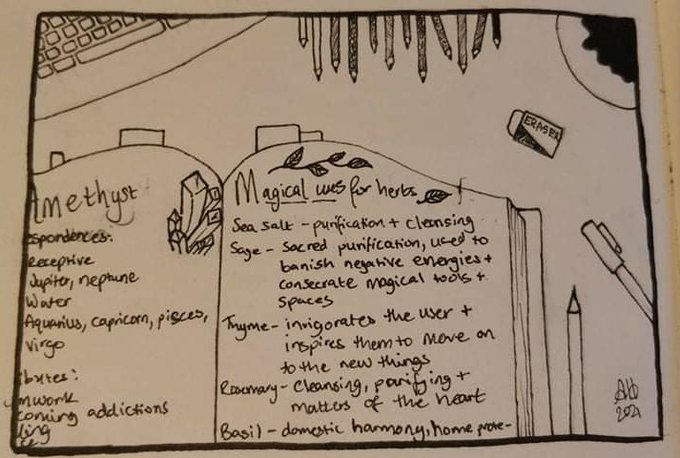 Amethyst
espondences:
Receptive
Jupiter, neptune
Water
Aquarius, capricorn, pisces,
Virgo
ibutes:
mwork
coming addictions
ling
Magical uses for herbs
Sea salt - purification + cleansing
Sage - Sacred purification, used to
banish negative energies +
consecrate magical tools +
spaces
Thyme - invigorates the user +
inspires them to move on
to the new things
Rosemary - Cleansing, purifying +
matters of the heart
Basil - domestic harmony, home prote-
ERASER
2021